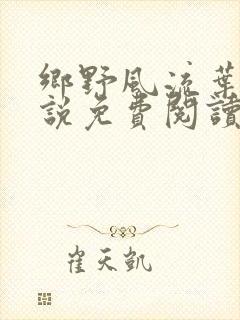 鄉野風流葉
說免費閱讀
崔天凱